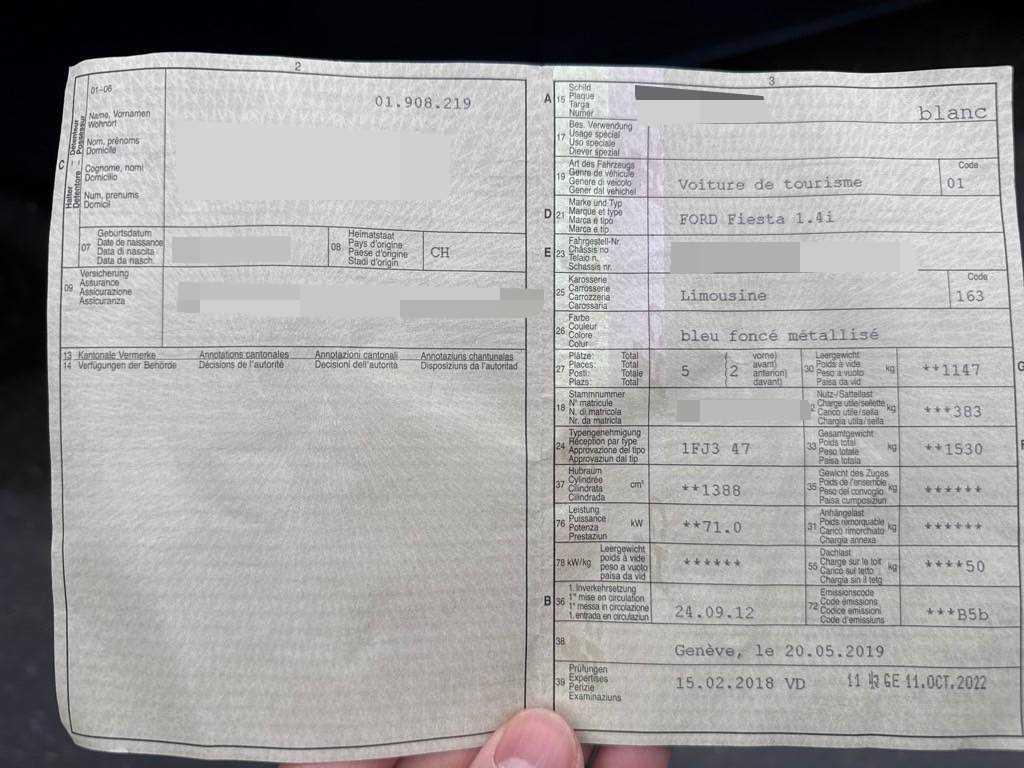 2
01-06
01.908.219
Name, Vornamen
Wohnort
Nom, prénoms
Domicile
Cognome, nomi
Domicilio
Num, prenums
Domicil
C
Halter
Détenteur
Detentore
Possessur
07
Geburtsdatum
Date de naissance
Data di nascita
Data da nasch.
08
Heimatstaat
Pays d'origine
Paese d'origine
Stadi d'origin
CH
09
Versicherung
Assurance
Assicurazione
Assicuranza
13 Kantonale Vermerke Annotations cantonales Annotazioni cantonali Annotaziuns chantunalas
14 Verfügungen der Behörde Décisions de l'autorité Decisioni dell'autorità Disposiziuns da l'autoritad
3
A 15
Schild
Plaque
Targa
Numer
blanc
17
Bes. Verwendung
Usage spécial
Uso speciale
Diever spezial
19
Art des Fahrzeugs
Genre de véhicule
Genere di veicolo
Gener dal vehichel
Voiture de tourisme
Code
01
D 21
Marke und Typ
Marque et type
Marca e tipo
Marca e tip
FORD Fiesta 1.4i
E 23
Fahrgestell-Nr.
Châssis no
Telaio n.
Schassis nr.
25
Karosserie
Carrosserie
Carrozzeria
Carossaria
Limousine
Code
163
26
Farbe
Couleur
Colore
Colur
bleu foncé métallisé
27
Plätze: Total
Places: Total
Posti: Totale
Plazs: Total
5
2
vorne)
avant)
anteriori)
davant)
30
Leergewicht
Poids à vide
Peso a vuoto
Paisa da vid
kg
**1147
18
Stammnummer
N° matricule
N. di matricola
Nr. da matricla
Nutz-/Sattellast
Charge utile/sellette
Carico utile/sella
Chargia utila/sella
kg
***383
24
Typengenehmigung
Réception par type
Approvazione del tipo
Approvaziun dal tip
1FJ3 47
33
Gesamtgewicht
Poids total
Peso totale
Paisa totala
kg
**1530
37
Hubraum
Cylindrée
Cilindrata
Cilindrada
cm³
**1388
35
Gewicht des Zuges
Poids de l'ensemble
Peso del convoglio
Paisa cumposiziun
kg
******
76
Leistung
Puissance
Potenza
Prestaziun
kW
**71.0
31
Anhängelast
Poids remorquable
Carico rimorchiato
Chargia annexa
kg
******
78 kW/kg
Leergewicht
poids à vide
peso a vuoto
paisa da vid
******
55
Dachlast
Charge sur le toit
Carico sul tetto
Chargia sin il tetg
kg
****50
B 36
1. Inverkehrsetzung
1re mise en circulation
1a messa in circolazione
1. entrada en circulaziun
24.09.12
72
Emissionscode
Code émissions
Codice emissioni
Code d'emissiuns
***B5b
38
Genève, le 20.05.2019
39
Prüfungen
Expertises
Perizie
Examinaziuns
15.02.2018 VD
GE 11.OCT.2022